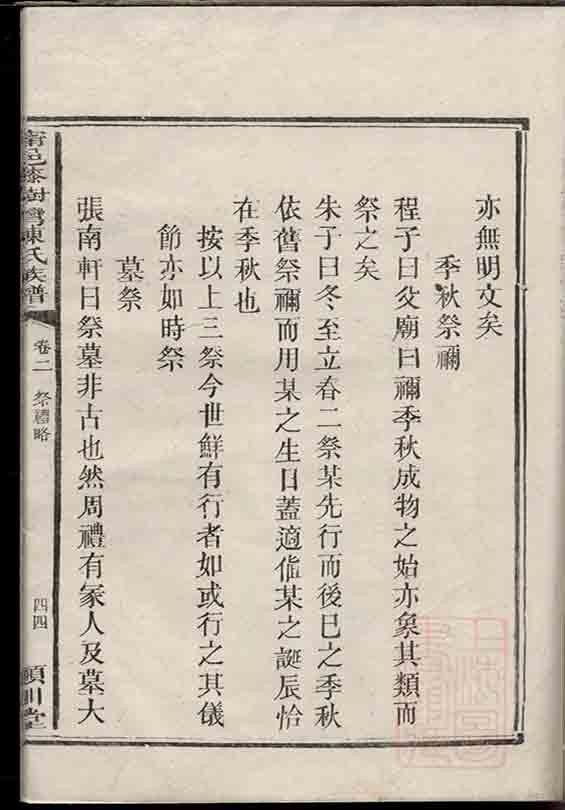 亦無明文矣
季秋祭禰
程子曰父廟曰禰季秋成物之始亦象其類而
祭之矣
朱子曰冬至立春二祭某先行而後已之季秋
依舊祭禰而用某之生日蓋適值某之誕辰恰
在季秋也
按以上三祭今世鮮有行者如或行之其儀
節亦如時祭
墓祭
張南軒曰祭墓非古也然周禮有冢人及墓大
甯邑漆樹灣陳氏族譜
卷二
祭禮略
四四
潁川堂